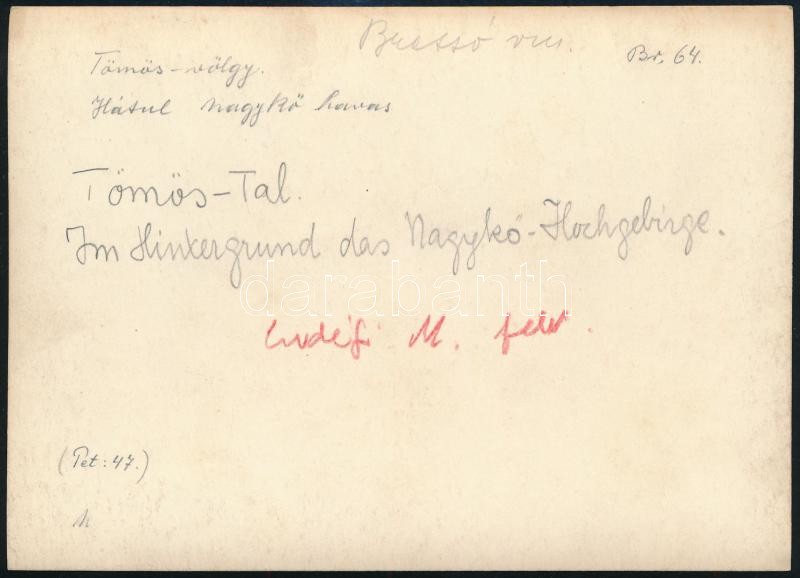 Brassó vm.
Br. 64.
Tömös-völgy.
Hátul Nagykő havas
Tömös-Tal.
Im Hintergrund das Nagykő-Hochgebirge.
darabanth
Erdélyi M. felv.
(Pet: 47.)